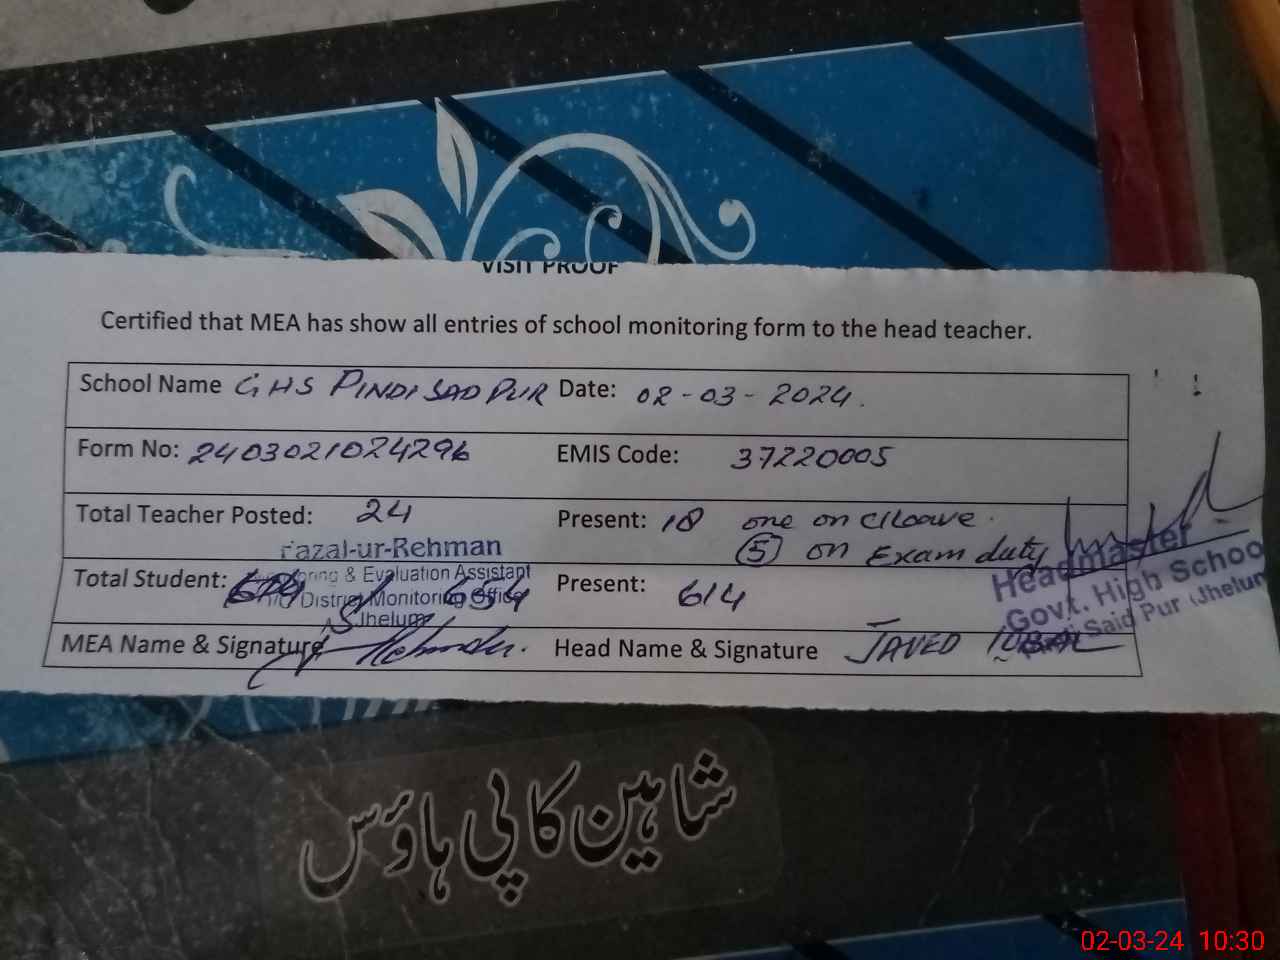 VISIT PROOF
Certified that MEA has show all entries of school monitoring form to the head teacher.
School Name GHS PINDI SAD PUR Date: 02-03-2024.
Form No: 2403021024296 EMIS Code: 37220005
Total Teacher Posted: 24 Present: 18 one on c/leave.
5 on Exam duty
Fazal-ur-Rehman
Monitoring & Evaluation Assistant
District Monitoring Office
Jhelum
Total Student: 654 Present: 614
Headmaster
Govt. High School
Said Pur (Jhelum
MEA Name & Signature Head Name & Signature JAVED IQBAL
شاہین کاپی ہاؤس
02-03-24 10:30